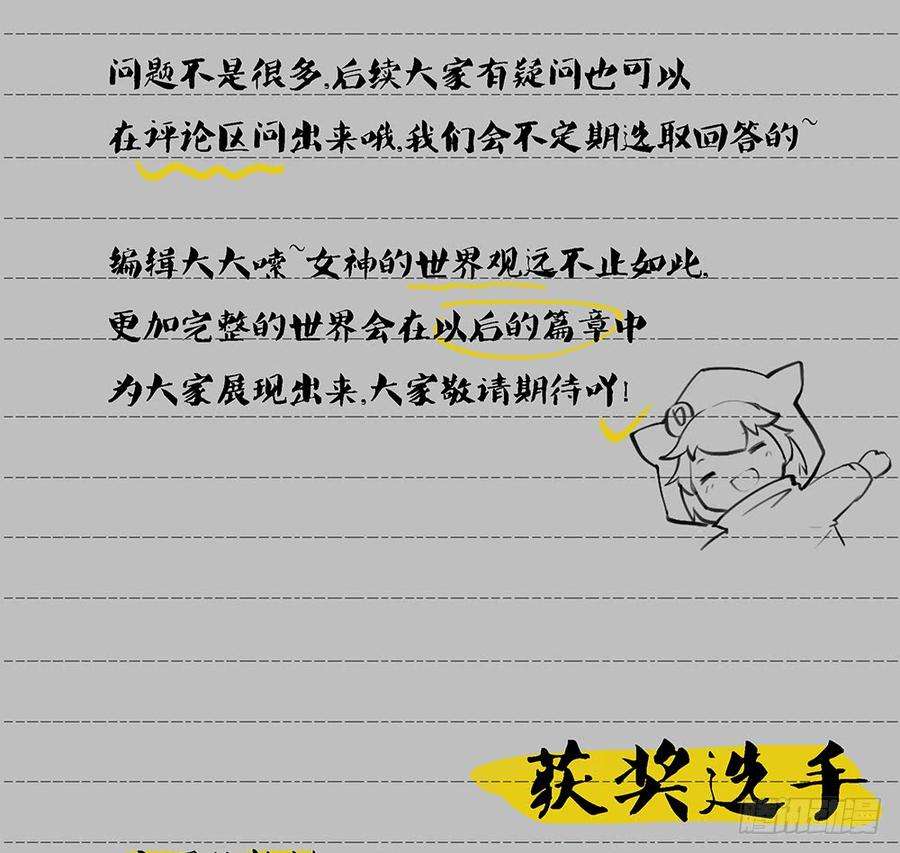 问题不是很多,后续大家有疑问也可以
在评论区问出来哦,我们会不定期选取回答的~
编辑大大嗦~女神的世界观远不止如此,
更加完整的世界会在以后的篇章中
为大家展现出来,大家敬请期待吖!
获奖选手
腾讯动漫